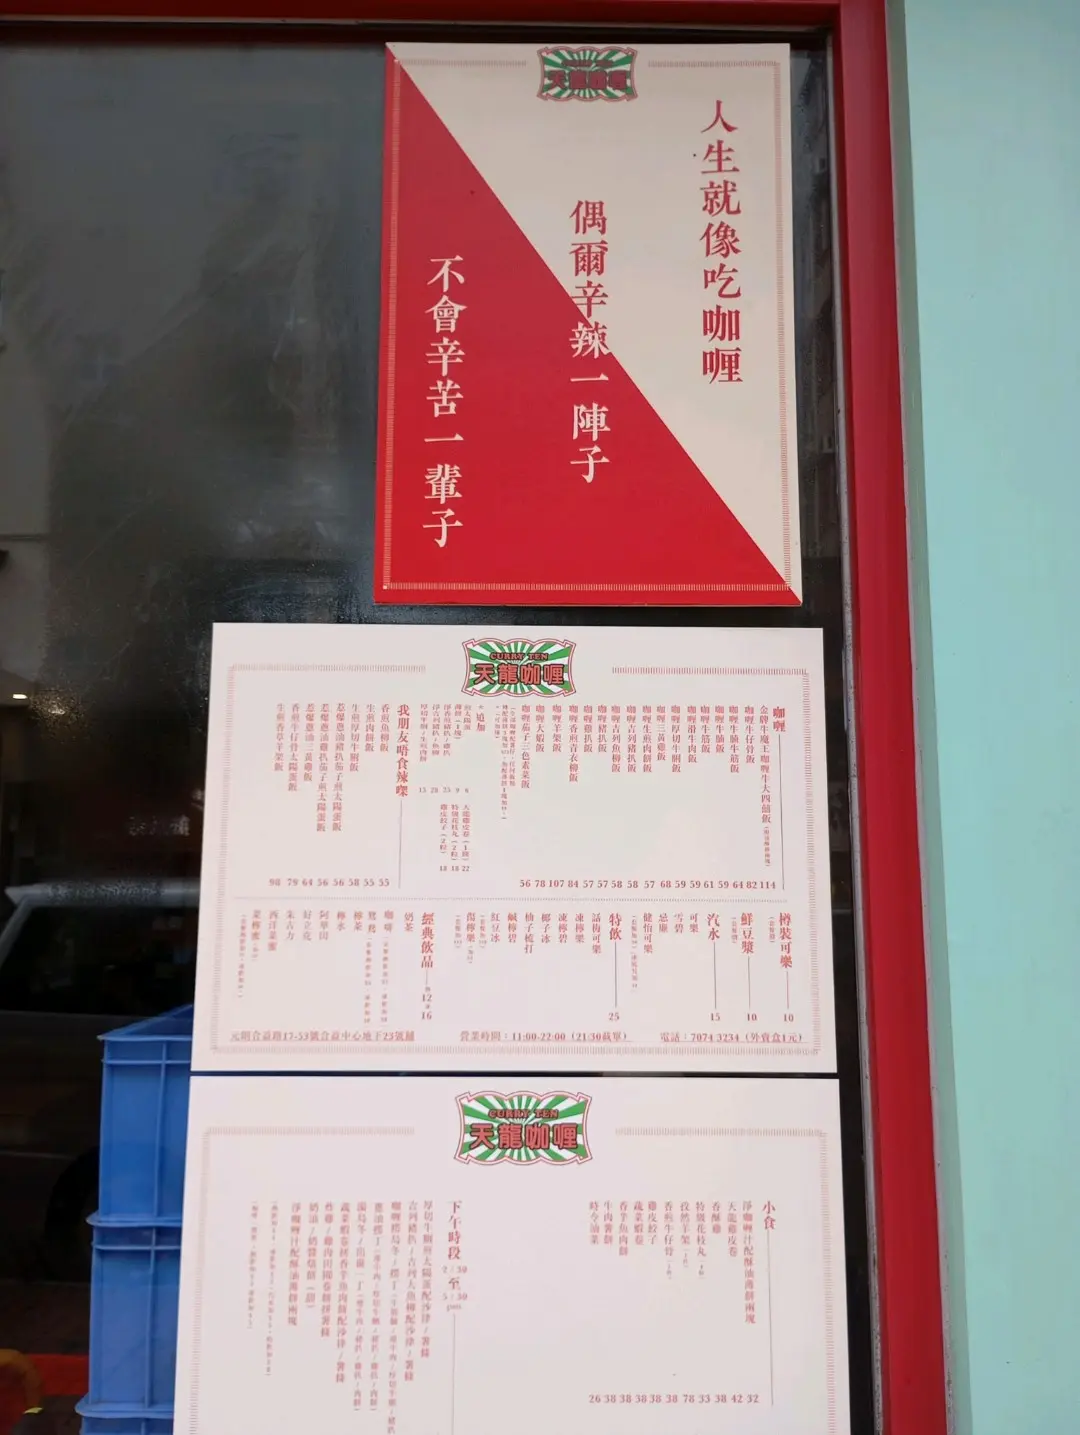 天龍咖喱
人生就像吃咖喱
偶爾辛辣一陣子
不會辛苦一輩子
CURRY TEN
天龍咖喱
咖喱
金牌牛魔王咖喱牛大四囍飯 114
咖喱牛仔骨飯 82
咖喱牛腩牛筋飯 64
咖喱牛腩飯 59
咖喱牛筋飯 61
咖喱滑牛肉飯 59
咖喱厚切牛脷飯 59
咖喱三黃雞飯 68
咖喱生煎肉餅飯 57
咖喱吉列豬扒飯 58
咖喱吉列魚柳飯 58
咖喱豬扒飯 57
咖喱雞扒飯 57
咖喱香煎青衣柳飯 84
咖喱羊架飯 107
咖喱大蝦飯 78
咖喱茄子三色素菜飯 56
追加
煎太陽蛋 6
薄餅(1塊) 9
淨香煎豬扒/雞扒 25
淨吉列豬扒/魚柳 28
厚切牛脷/生煎肉餅 15
天龍雞皮卷(1條) 22
特級花枝丸(2粒) 18
雞皮餃子(2粒) 18
我朋友唔食辣㗎
香煎魚柳飯 55
生煎肉餅飯 55
生煎厚切牛脷飯 58
惹爆蔥油豬扒茄子煎太陽蛋飯 56
惹爆蔥油雞扒茄子煎太陽蛋飯 56
惹爆蔥油三黃雞飯 64
香煎牛仔骨太陽蛋飯 79
生煎香草羊架飯 98
樽裝可樂 10
鮮豆漿 10
汽水 15
可樂
雪碧
忌廉
健怡可樂
特飲 25
話梅可樂
凍檸樂
凍檸碧
椰子冰
柚子梳打
鹹檸碧
紅豆冰
經典飲品 熱12 凍16
奶茶
咖啡
鴛鴦
檸茶
檸水
阿華田
好立克
朱古力
西洋菜蜜
菜檸蜜
元朗合益路17-53號合益中心地下25號舖
營業時間:11:00-22:00(21:30截單)
電話:7074 3234(外賣盒1元)
CURRY TEN
天龍咖喱
小食
淨咖喱汁配酥油薄餅兩塊 32
天龍雞皮卷 42
香酥雞 38
特級花枝丸 33
孜然羊架 78
香煎牛仔骨 38
雞皮餃子 38
蔬菜蝦卷 38
香芋魚肉餅 38
牛肉薯餅 38
時令油菜 26
下午時段 2:30至5:30pm
厚切牛脷煎太陽蛋配沙律/薯條
吉列豬扒/吉列大魚柳配沙律/薯條
蔬菜蝦卷拼香芋魚肉餅配沙律/薯條
淨咖喱汁配酥油薄餅兩塊